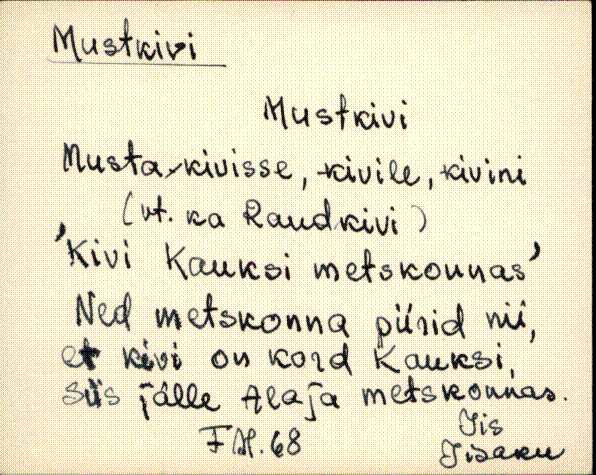 Mustkivi
Mustkivi
Musta-kivisse, -kivile, kivini
(vt. ka Raudkivi)
'Kivi Kauksi metskonnas'
Ned metskonna piirid nii,
et kivi on kord Kauksi,
siis jälle Alaja metskonnas.
Iis
68
Iisaku